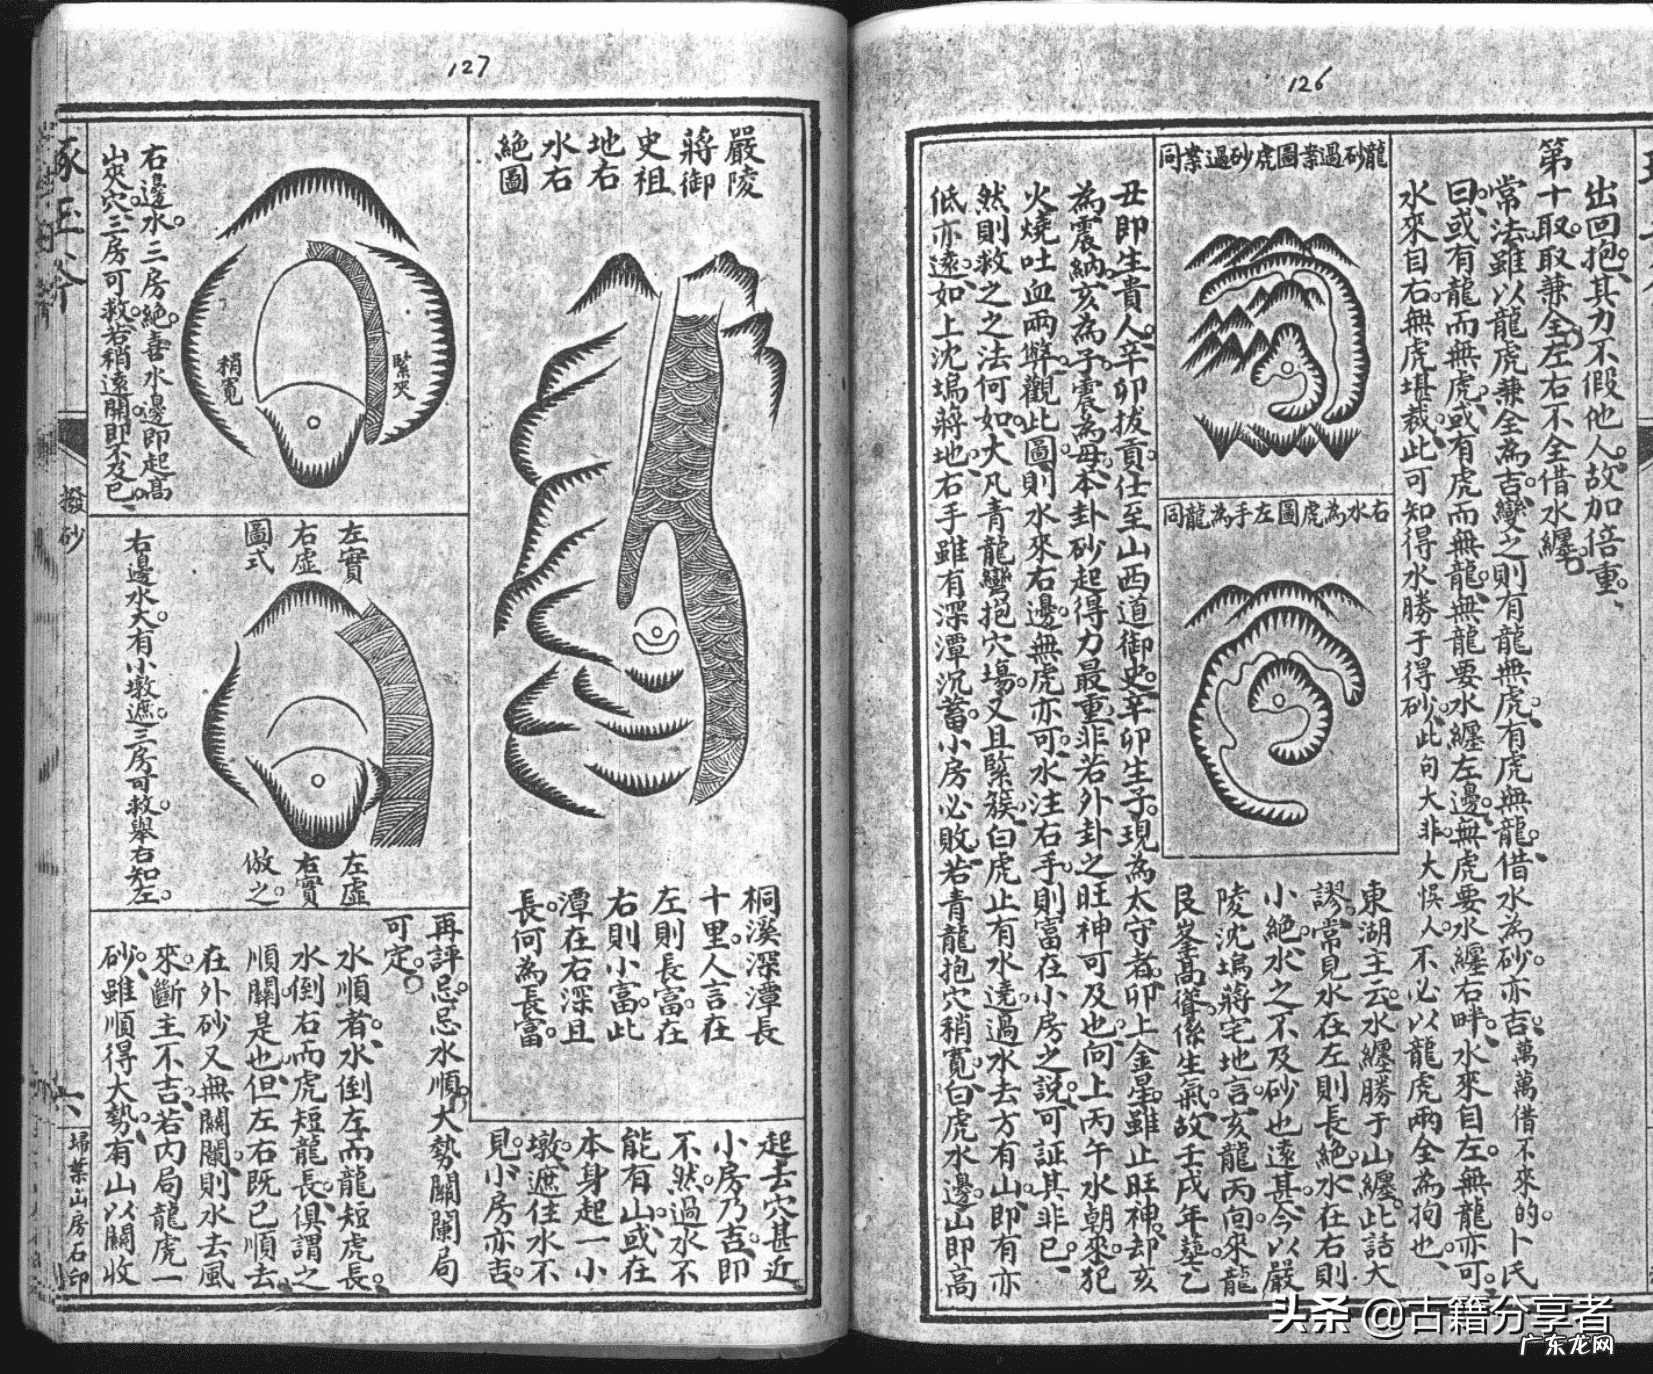 126
出回抱其力不假他人故加倍重
第十取取兼全左右不全借水纏
常法雖以龍虎兼全為吉變之則有龍無虎有虎無龍借水為砂亦吉萬萬借不來的卜氏
曰或有龍而無虎或有虎而無龍無龍要水纏左邊無虎要水纏右畔水來自左無龍亦可
水來自右無虎堪裁此可知得水勝于得砂此句大非大悞人不必以龍虎兩全為拘也
龍砂過業圖虎砂過業同
右水為虎圖左手為龍同
東湖主云水纏勝于山纏此話大
謬常見水在左則長絕水在右則
小絕水之不及砂也遠甚今以嚴
陵沈塢蔣宅地言亥龍丙向來龍
艮峯高聳係生氣故壬戌年塟乙
丑即生貴人辛卯拔貢仕至山西道御史辛卯生子現為太守者卯上金星雖止旺神却亥
為震納亥為子震為母本卦砂起得力最重非若外卦之旺神可及也向上丙午水朝來犯
火燒吐血兩弊觀此圖則水來右邊無虎亦可水注右手則富在小房之說可証其非已
然則救之之法何如大凡青龍彎抱穴塲又且緊簇白虎止有水遶過水去方有山即有亦
低亦遠如上沈塢蔣地右手雖有深潭沉蓄小房必敗若青龍抱穴稍寬白虎水邊山即高
127
嚴陵
蔣御
史祖
地右
水右
絕圖
桐溪深潭長
十里人言在
左則長富在
右則小富此
潭在右深且
長何為長富
起去穴甚近
小房乃吉即
不然過水不
能有山或在
本身起一小
墩遮住水不
見小房亦吉
緊夾
稍寬
右邊水三房絕喜水邊即起高
山夾穴三房可救若稍遠開即不及已
左實
右虛
圖式
左虛
右實
倣之
右邊水大有小墩遮三房可救舉右知左
再評忌忌水順大勢關闌局
可定
水順者水倒左而龍短虎長
水倒右而虎短龍長俱謂之
順關是也但左右既已順去
在外砂又無關闌則水去風
來斷主不吉若內局龍虎一
砂雖順得大勢有山以關收
琢玉斧
撥砂
六
埽葉山房石印
头条 @古籍分享者
广东龙网